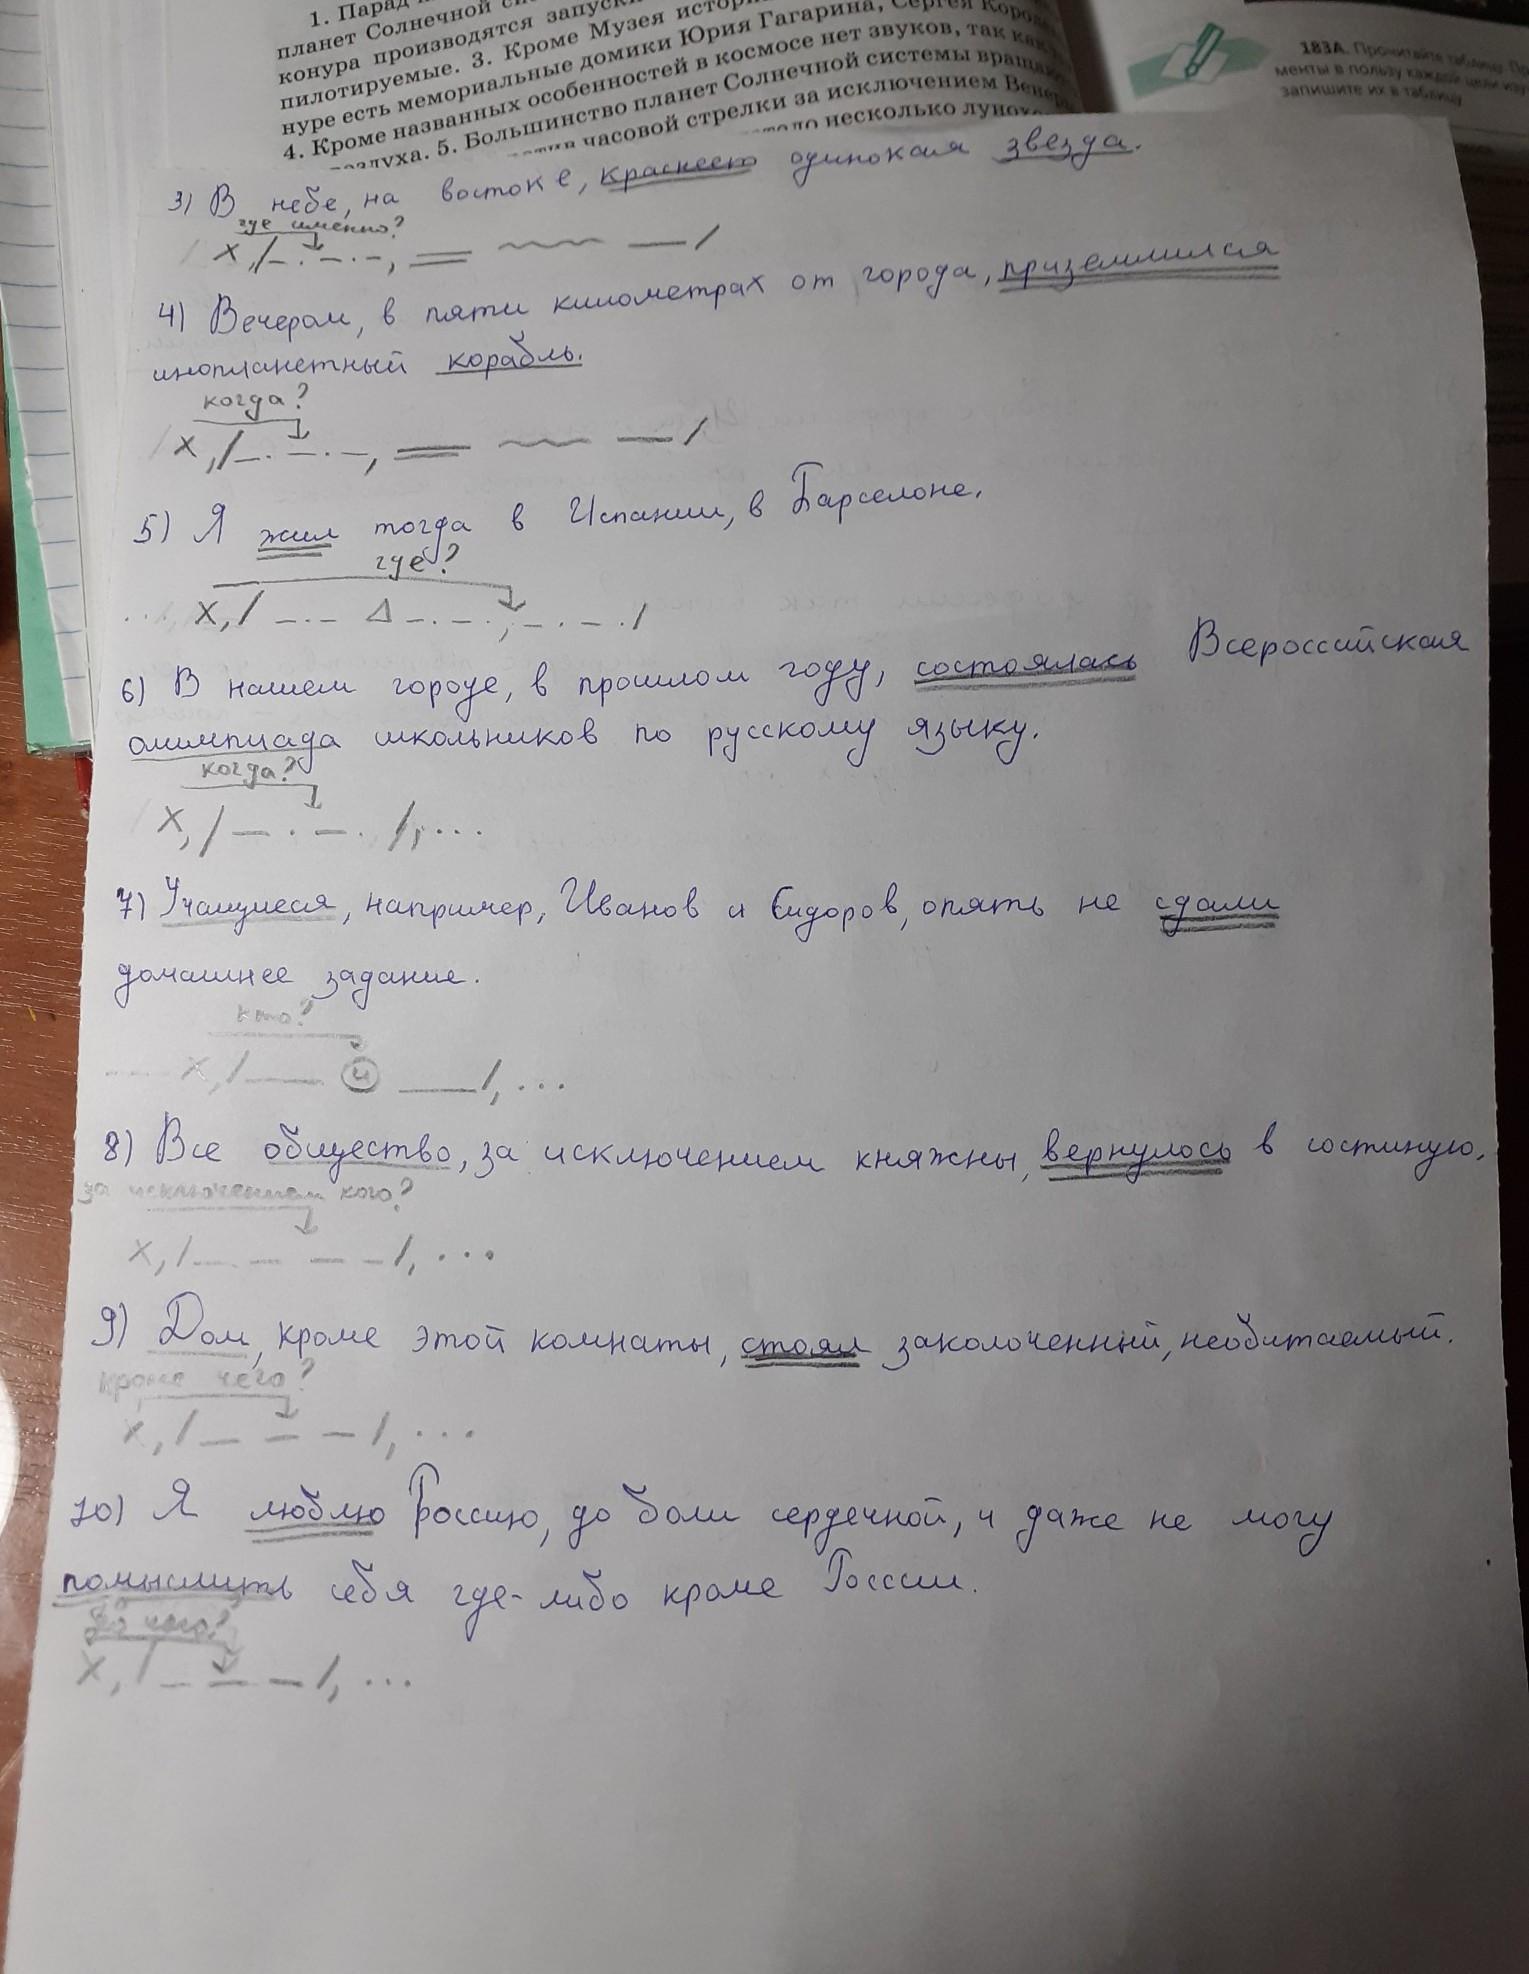 1. Парад
планет Солнечной
конура производятся запуски
пилотируемые. 3. Кроме Музея истор
нуре есть мемориальные домики Юрия Гагарина, Сергея Корол
4. Кроме названных особенностей в космосе нет звуков, так как
воздуха. 5. Большинство планет Солнечной системы вращаю
часовой стрелки за исключением Венеры
несколько лунохо
183А. Прочитайте таблицу.
менты в пользу каждой цели изу
запишите их в таблицу
3) В небе, на востоке, краснеет одинокая звезда.
где именно?
X, / _ . _ . _ , /
4) Вечером, в пяти километрах от города, приземлился
инопланетный корабль.
когда?
X, / _ . _ . _ , /
5) Я жил тогда в Испании, в Барселоне.
где?
X, / _ . _ Δ _ . _ . , _ . _ . /
6) В нашем городе, в прошлом году, состоялась Всероссийская
олимпиада школьников по русскому языку.
когда?
X, / _ . _ . /, ...
7) Учащиеся, например, Иванов и Сидоров, опять не сдали
домашнее задание.
кто?
X, / __ и __ /, ...
8) Все общество, за исключением княжны, вернулось в гостиную.
за исключением кого?
X, / _ _ _ _ /, ...
9) Дом, кроме этой комнаты, стоял заколоченный, необитаемый.
кроме чего?
X, / _ _ _ /, ...
10) Я люблю Россию, до боли сердечной, и даже не могу
помыслить себя где-либо кроме России.
до чего?
X, / _ _ _ /, ...